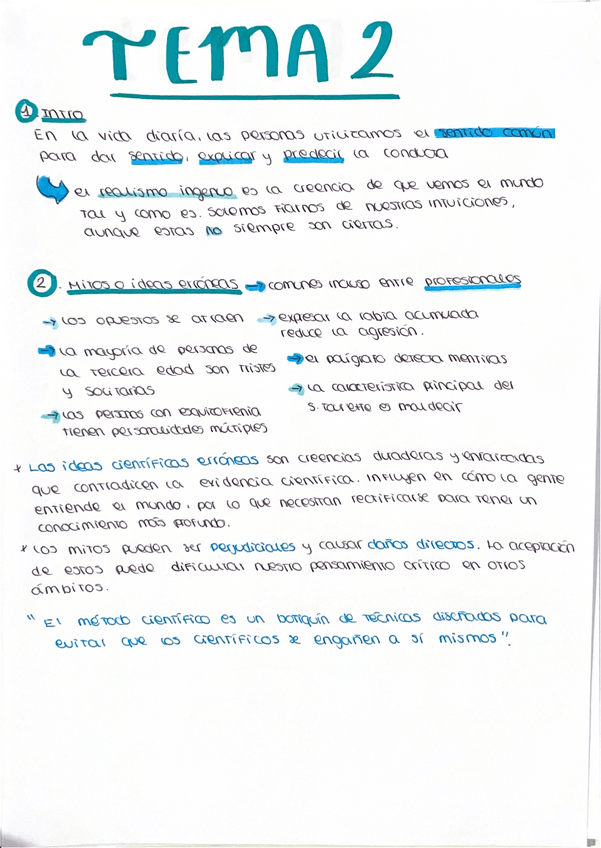 TEMA 2
1. Intro
En la vida diaría, las personas utilizamos el sentido común
para dar sentido, explicar y predecir la conducta
el realismo ingenuo es la creencia de que vemos el mundo
tal y como es. Solemos fiarnos de nuestras intuiciones,
aunque estas no siempre son ciertas.
2. Mitos o ideas erróneas → comunes incluso entre profesionales
→ los opuestos se atraen
→ la mayoría de personas de
la tercera edad son tristes
y solitarias
→ las personas con esquizofrenia
tienen personalidades múltiples
→ expresar la rabia acumulada
reduce la agresión.
→ el polígrafo detecta mentiras
→ la característica principal del
S. Tourette es maldecir
* Las ideas científicas erróneas son creencias duraderas y enraizadas
que contradicen la evidencia científica. Influyen en cómo la gente
entiende el mundo, por lo que necesitan rectificarse para tener un
conocimiento más profundo.
* Los mitos pueden ser perjudiciales y causar daños directos. La aceptación
de estos puede dificultar nuestro pensamiento crítico en otros
ámbitos.
"El método científico es un botiquín de técnicas diseñadas para
evitar que los científicos se engañen a sí mismos".